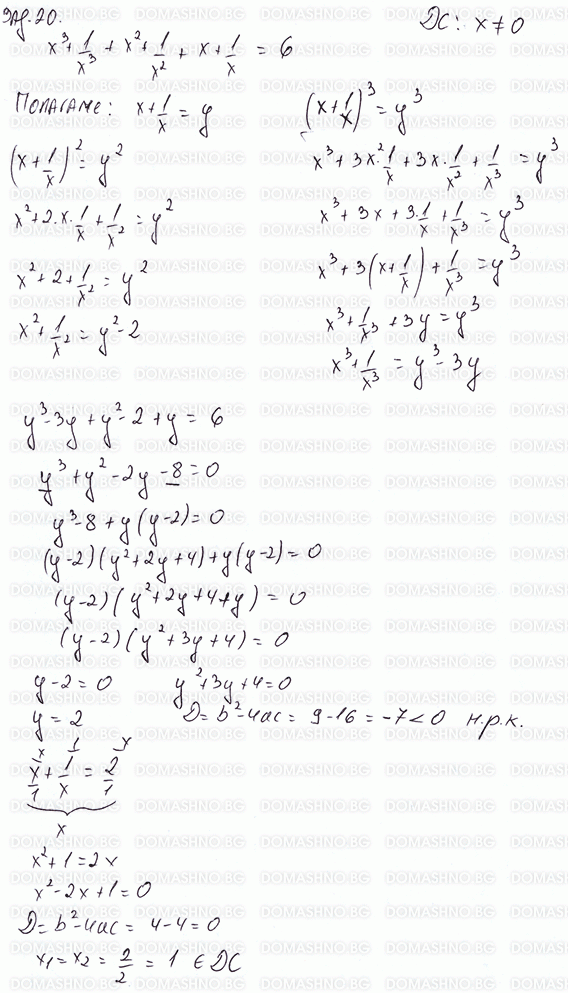 Зад. 20.
ДС: x ≠ 0
x³ + 1/x³ + x² + 1/x² + x + 1/x = 6
Полагаме: x + 1/x = y
(x + 1/x)² = y²
x² + 2.x.1/x + 1/x² = y²
x² + 2 + 1/x² = y²
x² + 1/x² = y² - 2
(x + 1/x)³ = y³
x³ + 3x².1/x + 3x.1/x² + 1/x³ = y³
x³ + 3x + 3.1/x + 1/x³ = y³
x³ + 3(x + 1/x) + 1/x³ = y³
x³ + 1/x³ + 3y = y³
x³ + 1/x³ = y³ - 3y
y³ - 3y + y² - 2 + y = 6
y³ + y² - 2y - 8 = 0
y³ - 8 + y(y - 2) = 0
(y - 2)(y² + 2y + 4) + y(y - 2) = 0
(y - 2)(y² + 2y + 4 + y) = 0
(y - 2)(y² + 3y + 4) = 0
y - 2 = 0
y = 2
y² + 3y + 4 = 0
D = b² - 4ac = 9 - 16 = -7 < 0 н.р.к.
x 1 x
x/1 + 1/x = 2/1
x
x² + 1 = 2x
x² - 2x + 1 = 0
D = b² - 4ac = 4 - 4 = 0
x₁ = x₂ = 2/2 = 1 ∈ ДС
DOMASHNO.BG